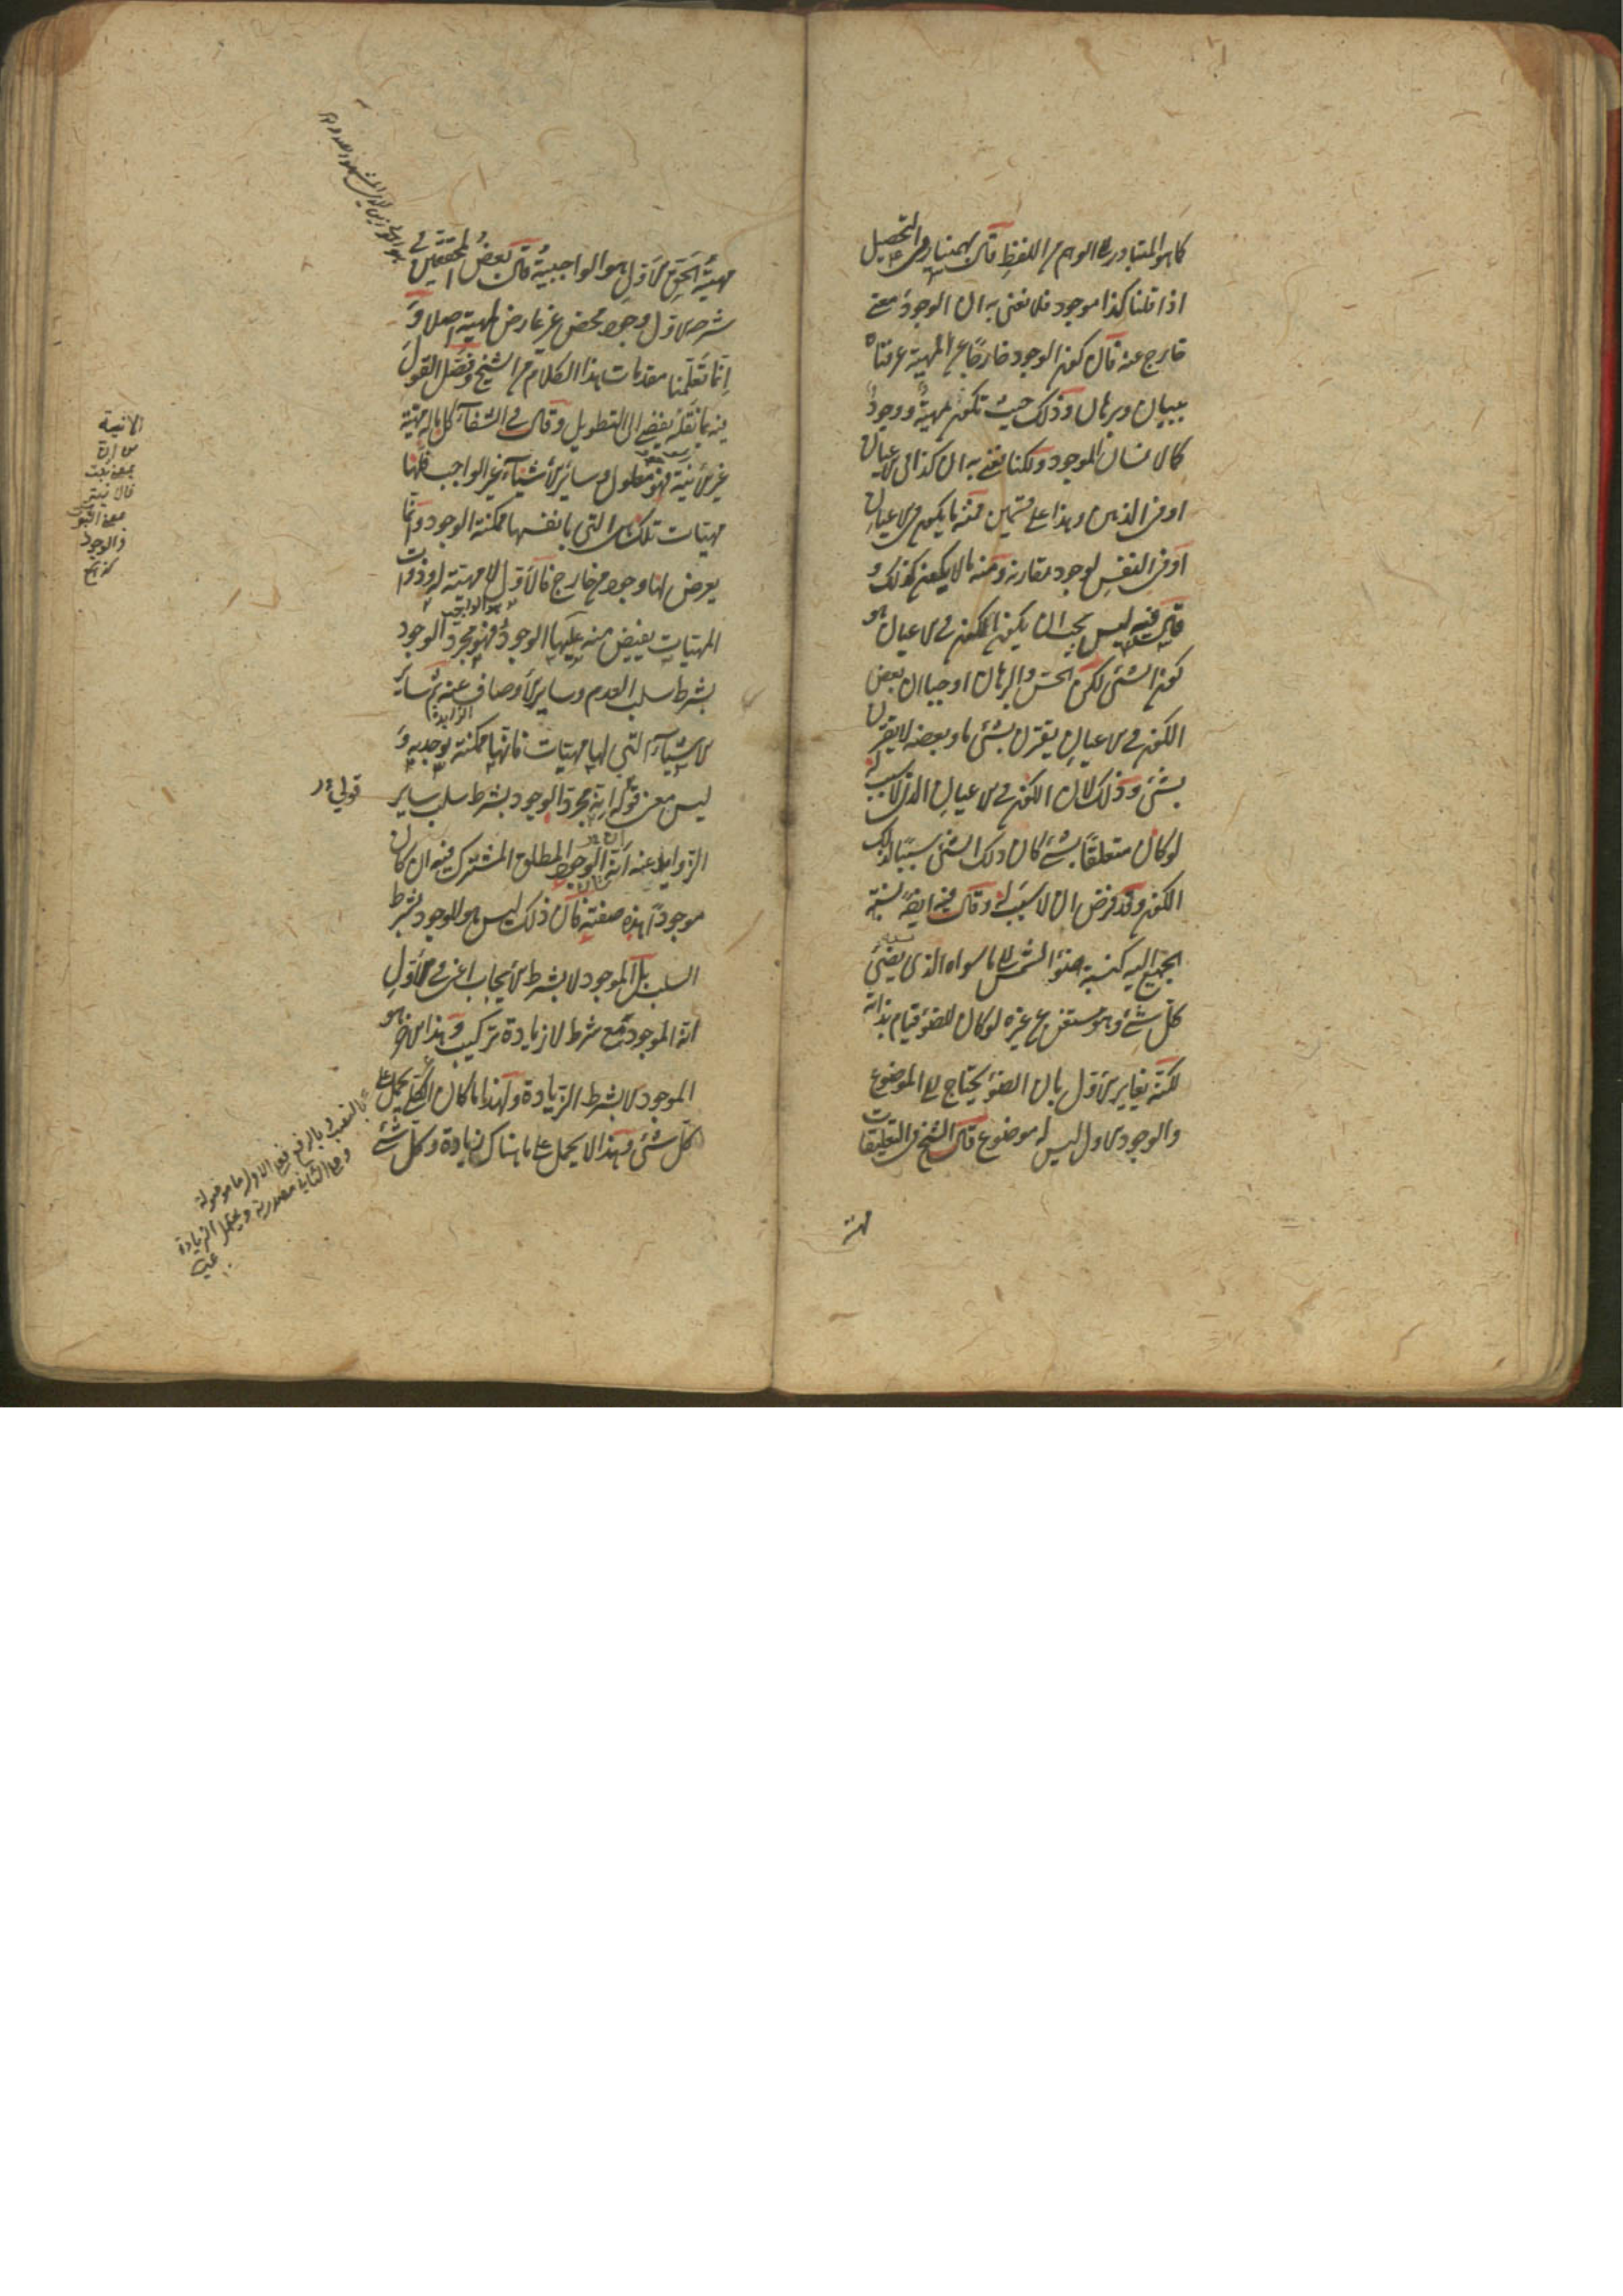 كما هو المتبادر الى الوهم من اللفظ قال بهمنيار في التحصيل
اذا قلنا كذا موجود فلا نعنى به ان الوجود معنى
خارج عنه فان كون الوجود خارجا عن المهية عرفناه
ببيان وبرهان وذلك حيث تكون مهية ووجود
كالانسان الموجود ولكنا نعنى به ان كذا فى الاعيان
او فى الذهن وهذا على قسمين فمنه ما يكون فى الاعيان
او فى النفس لوجود مقارنه ومنه ما لا يكون كذلك و
قال فيه ليس يجب ان يكون الكون فى الاعيان هو
كون الشئ لكن الحس والبرهان اوجبا ان بعض
الكون فى الاعيان يقترن بشئ ما وبعضه لا يقترن
بشئ وذلك لان الكون فى الاعيان الذى لا سبب له
لو كان متعلقا بشئ كان ذلك الشئ سببا لذلك
الكون وقد فرض ان لا سبب له وقال فيه ايضا نسبة
الجميع اليه كنسبة ضوء الشمس الى ما سواه الذى يضئ
كل شئ وهو مستغن عن غيره لو كان للضوء قيام بذاته
لكنه يغاير الاول بان الضوء يحتاج الى الموضوع
والوجود الاول ليس له موضوع قال الشيخ فى التعليقات
مهية
مهية الحق الاول هو الواجبية قال بعض المحققين فى
شرحه الاول وجود محض غير عارض لمهية اصلا و
انا تعلمنا مقدمات هذا الكلام من الشيخ وفصل القول
فيه بما نقله يفضى الى التطويل وقال فى الشفاء كل ما له مهية
غير الانية فهو معلول وساير الاشياء غير الواجب فلها
مهيات تلك هى التى بانفسها ممكنة الوجود وانما
يعرض لها وجود من خارج فالاول لا مهية له وذوات
المهيات يفيض منه عليها الوجود فهو مجرد الوجود
هو الواجب
بشرط سلب العدم وساير الاوصاف عنه ثم ساير
الزايدة
الاشياء التى لها مهيات فانها ممكنة توجد به و
ليس معنى قوله انه مجرد الوجود بشرط سلب ساير
الزوايد عنه انه الوجود المطلق المشترك فيه ان كان
موجودا هذه صفته فان ذلك ليس هو الموجود بشرط
السلب بل الموجود لا بشرط الايجاب اعنى فى الاول
انه الموجود مع شرط لا زيادة تركيب وهذا الاخر هو
الموجود لا بشرط الزيادة ولهذا ما كان الكلى يحمل على
كل شئ وهذا لا يحمل على ما هناك زيادة وكل شئ
الانية
من ان